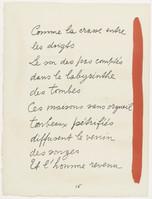 Comme la craie entre
les doigts
Le son des pas comptés
dans le labyrinthe
des tombes
Ces maisons sans orgueil
tombeaux pétrifiés
diffusent le venin
des songes
Et l'homme revenu